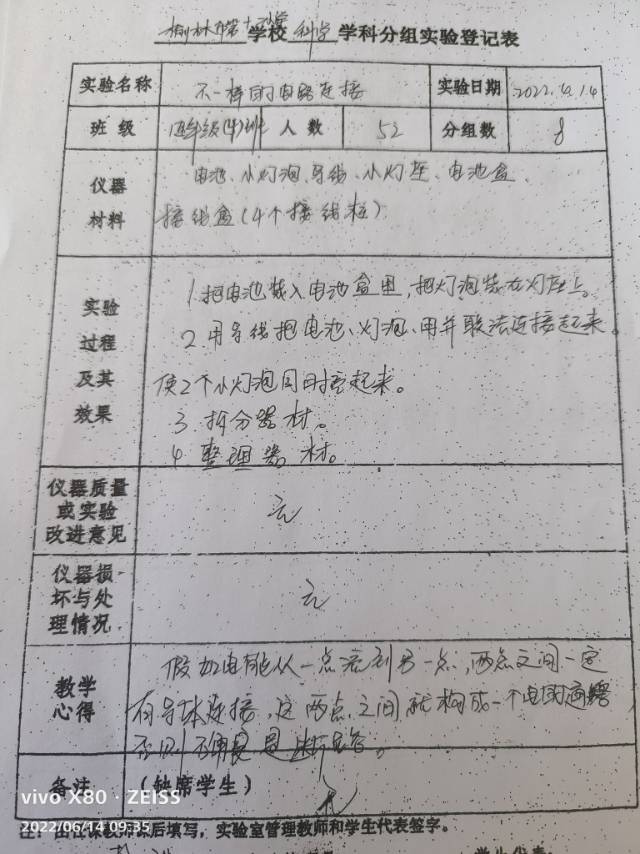 榆林市第十二小学 学校 科学 学科分组实验登记表
实验名称 不一样的电路连接 实验日期 2022.4.14
班级 四年级(4)班 人数 52 分组数 8
仪器材料 电池、小灯泡、导线、小灯座、电池盒、
接线盒(4个接线柱)
实验过程及其效果 1.把电池装入电池盒里,把灯泡装在灯座上。
2.用导线把电池、灯泡、用并联法连接起来。
使2个小灯泡同时亮起来。
3.拆分器材。
4.整理器材。
仪器质量或实验改进意见 无
仪器损坏与处理情况 无
教学心得 假如电能从一点流到另一点,两点之间一定
有导体连接,这两点之间就构成一个电流通路
否则
备注 (缺席学生) 无
注:由任课教师课后填写,实验室管理教师和学生代表签字。
vivo X80 · ZEISS
2022/06/14 09:35